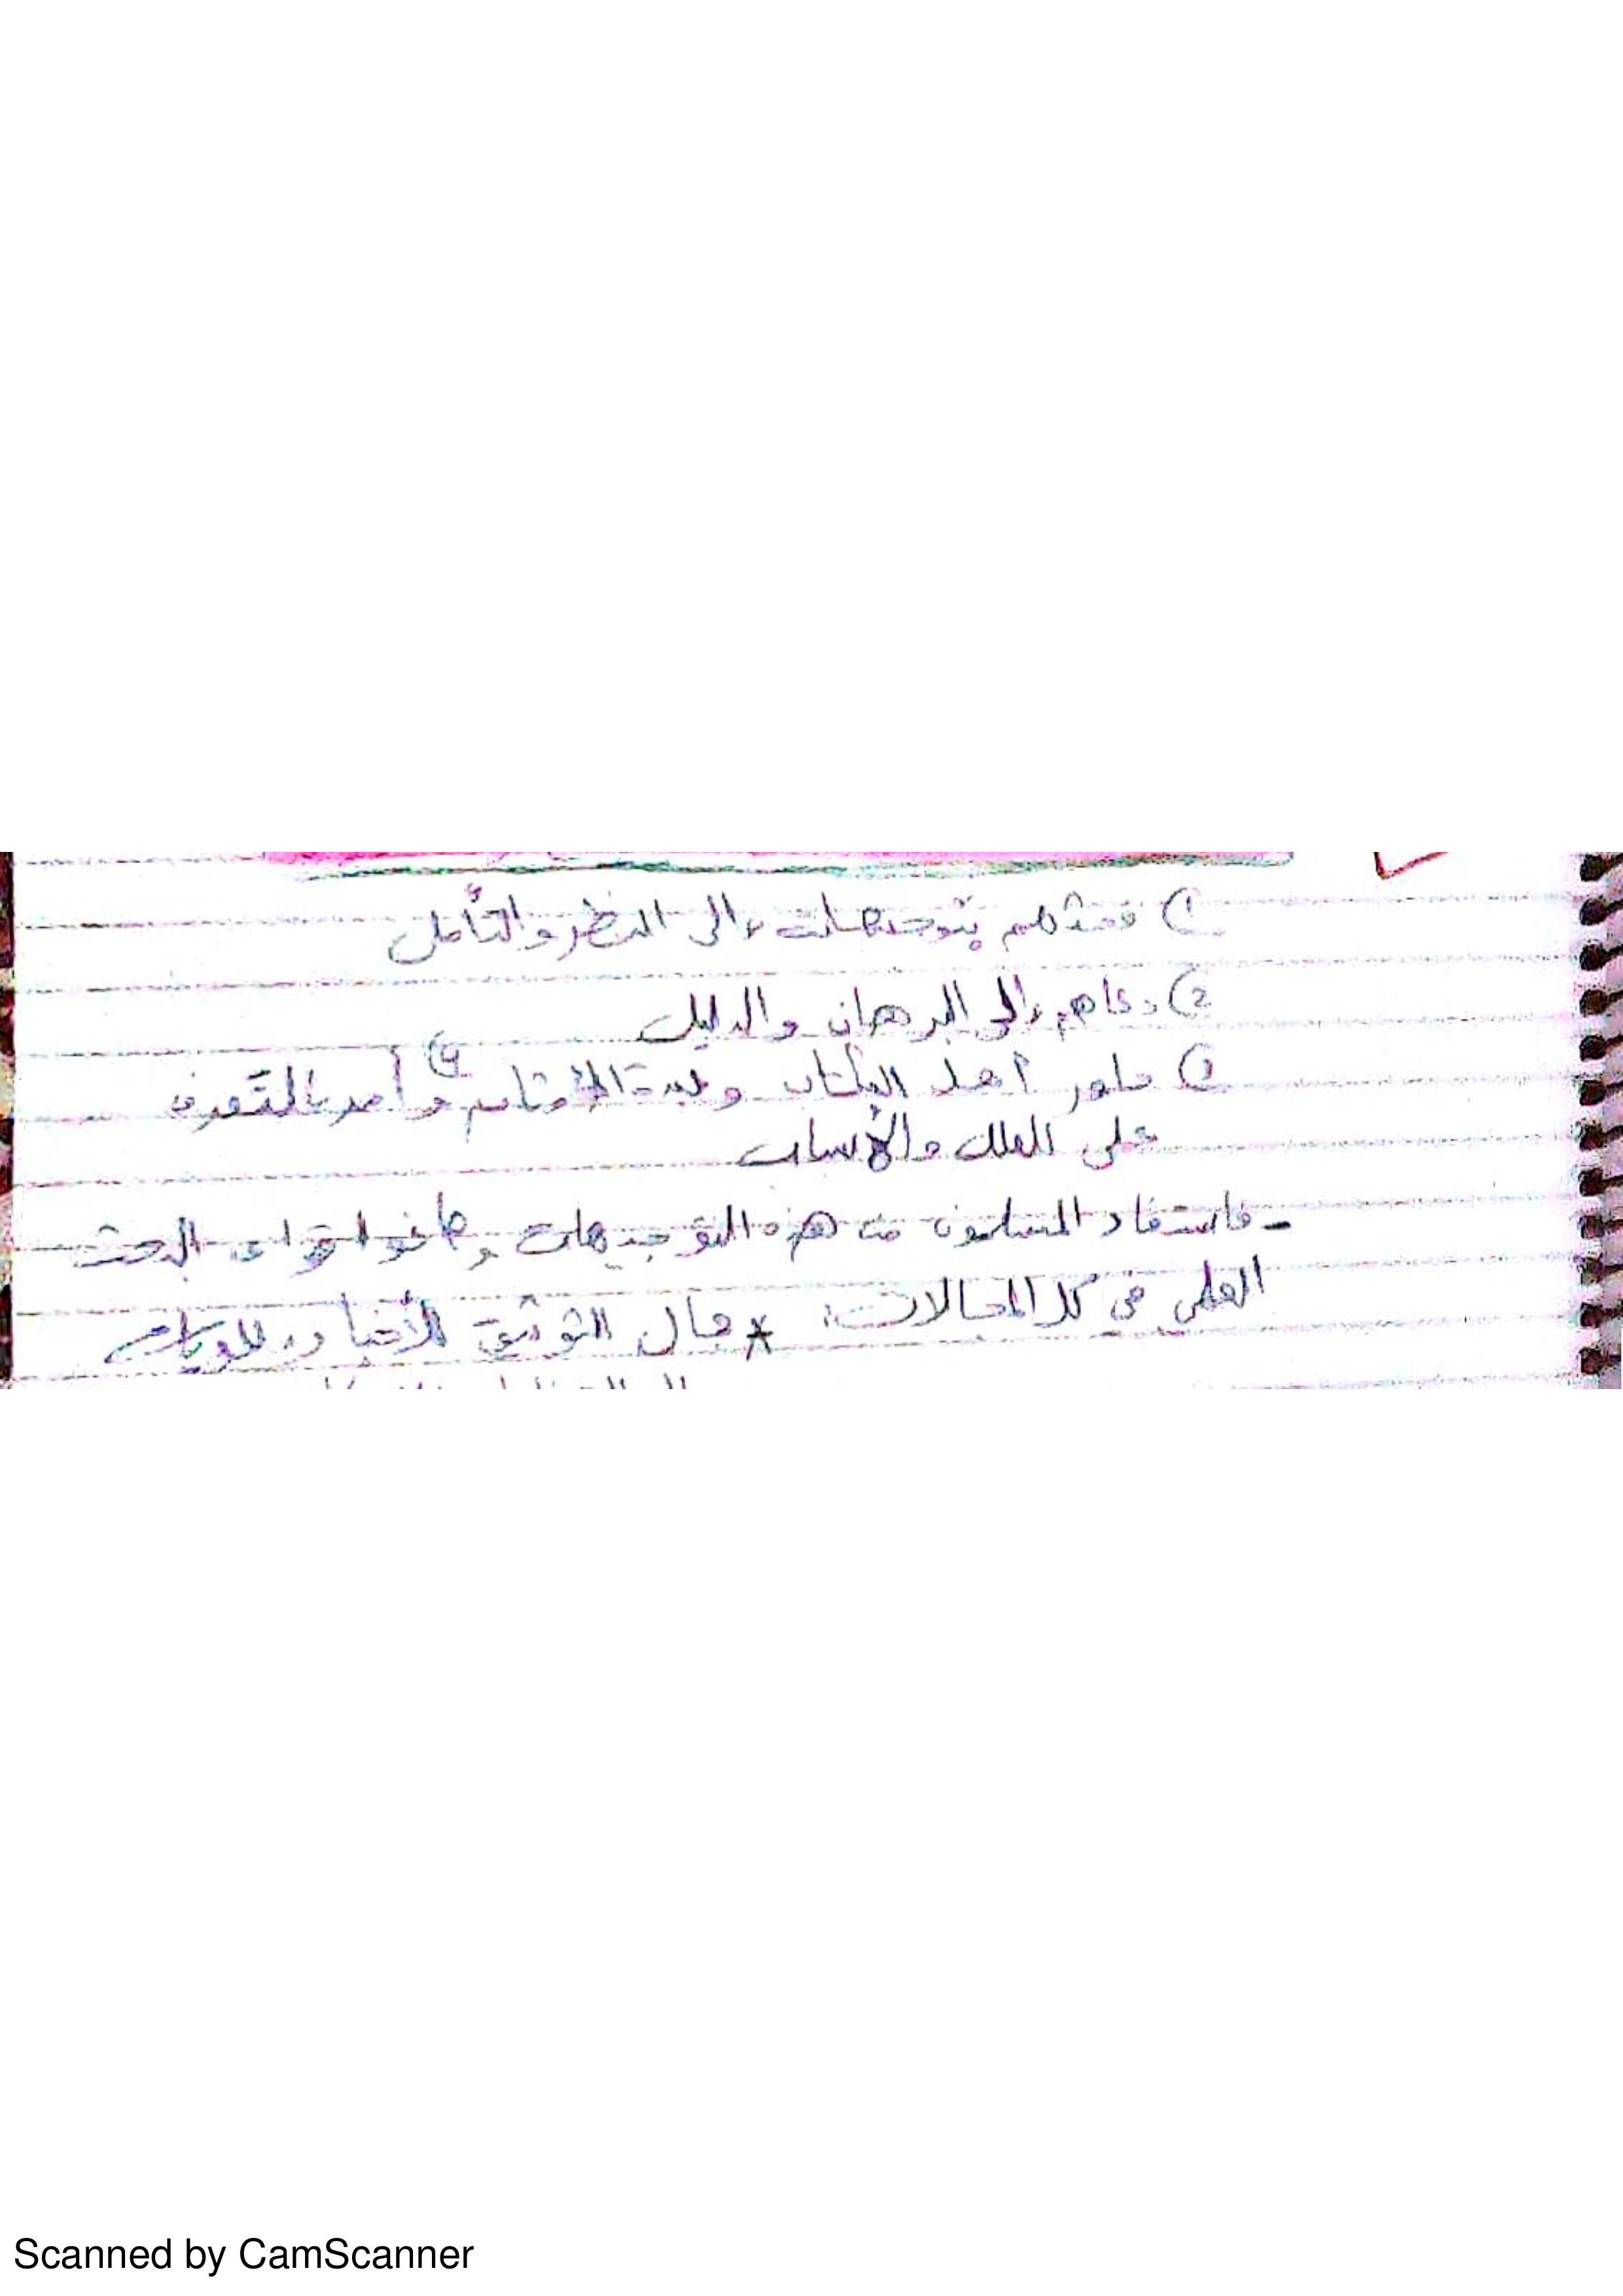 1) فحثهم بتوجيهات إلى النظر والتأمل
2) دعاهم إلى البرهان والدليل
3) حاور أهل الكتاب وعبدة الأوثان 4) وأمر بالتعرف
على العلل والأسباب
- فاستفاد المسلمون من هذه التوجيهات وصاغوا قواعد البحث
العلمي في كل المجالات: * مجال التوثيق للأخبار
Scanned by CamScanner